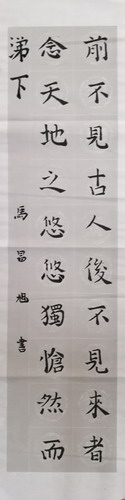 前不見古人後不見來者
念天地之悠悠獨愴然而
涕下
馬昌旭書